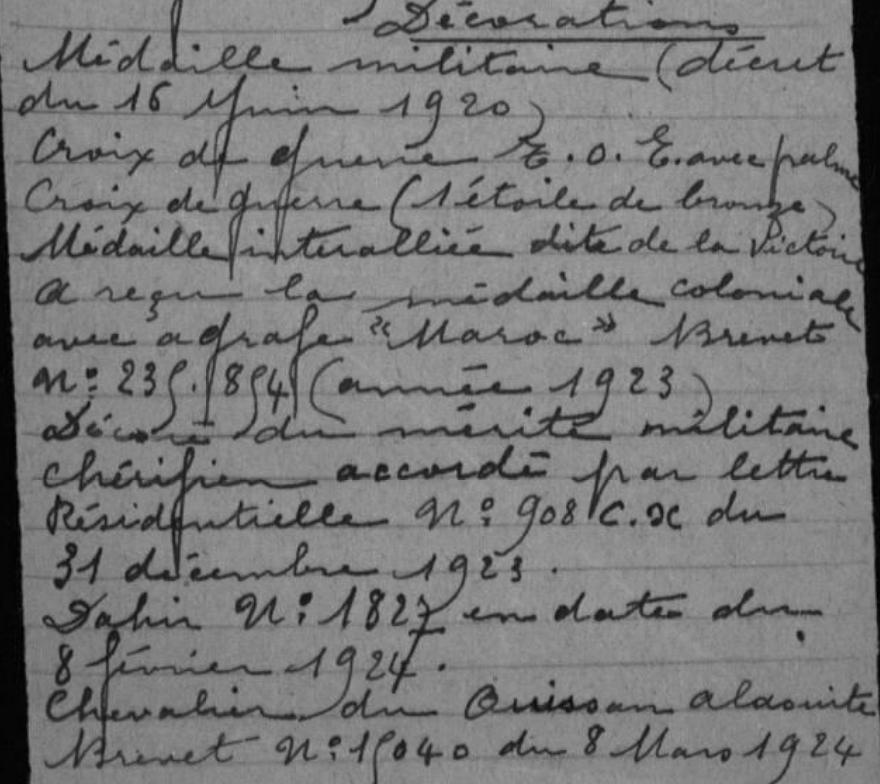 Décorations
Médaille militaire (décret
du 16 Juin 1920)
Croix de guerre T.O.E. avec palme
Croix de guerre (1 étoile de bronze)
Médaille interalliée dite de la Victoire
a reçu la médaille coloniale
avec agrafe "Maroc" Brevet
N° 235.854 (année 1923)
Décoré du mérite militaire
chérifien accordé par lettre
Résidentielle N° 908 C.K du
31 décembre 1923.
Dahir N° 1827 en date du
8 février 1924.
Chevalier du Ouissam alaouite
Brevet N° 15040 du 8 Mars 1924